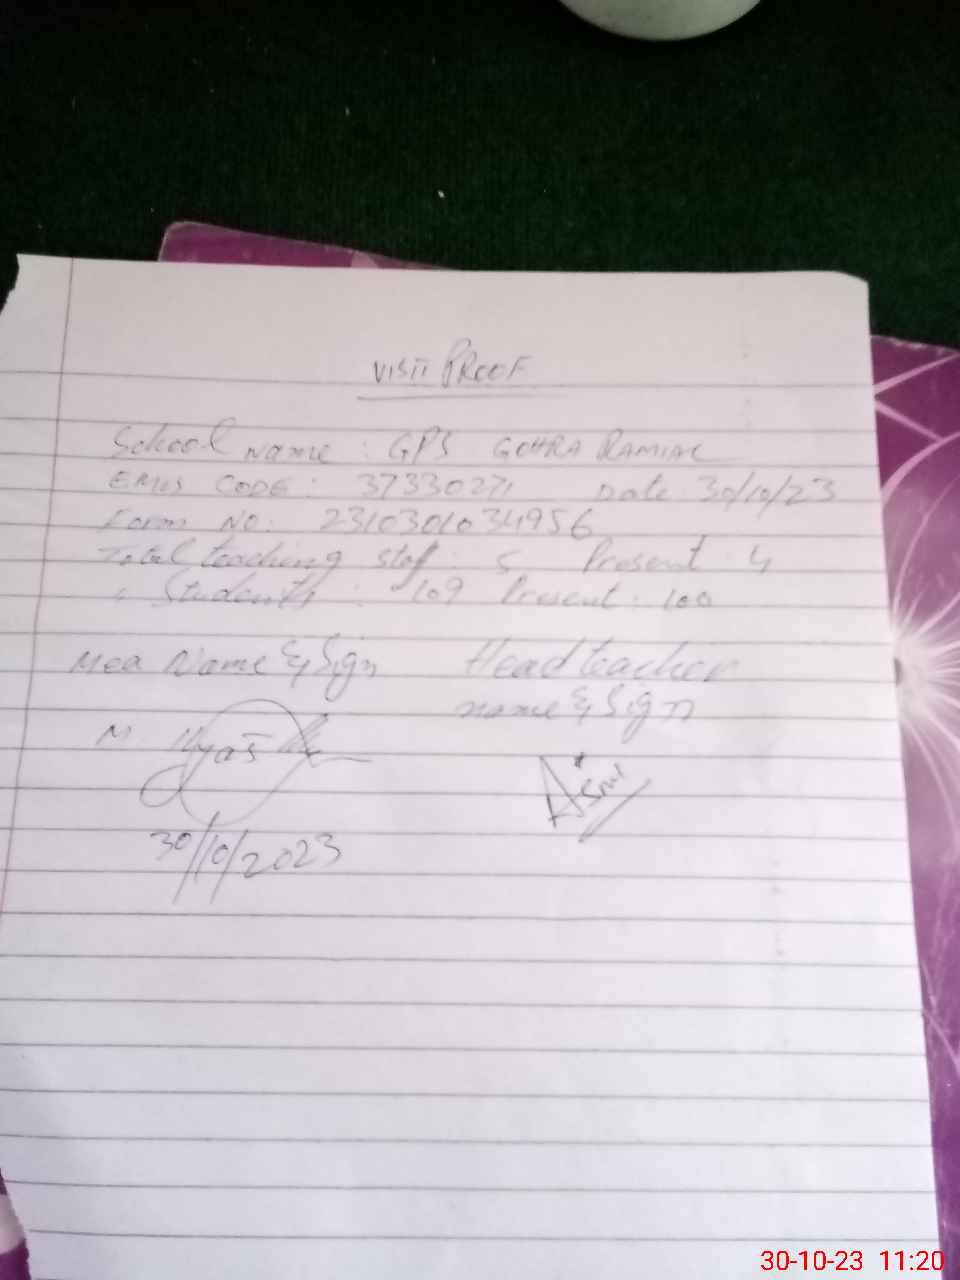 VISIT PROOF
School Name : GPS GOHRA RAMIAL
EMIS CODE : 37330271 Date 30/10/23
Form NO: 2310301034956
Total teaching staff : 5 Present 4
" Students : 109 Present : 100
Mea Name & Sign Headteacher
name & Sign
M Ilyas
30/10/2023
30-10-23 11:20